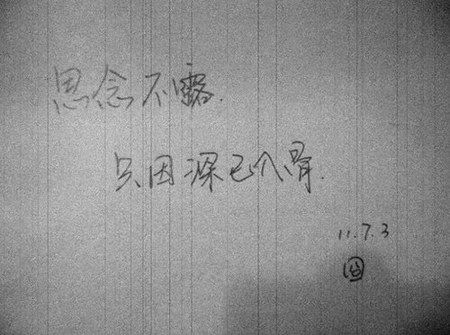 思念不露.
只因深已入骨.
11.7.3